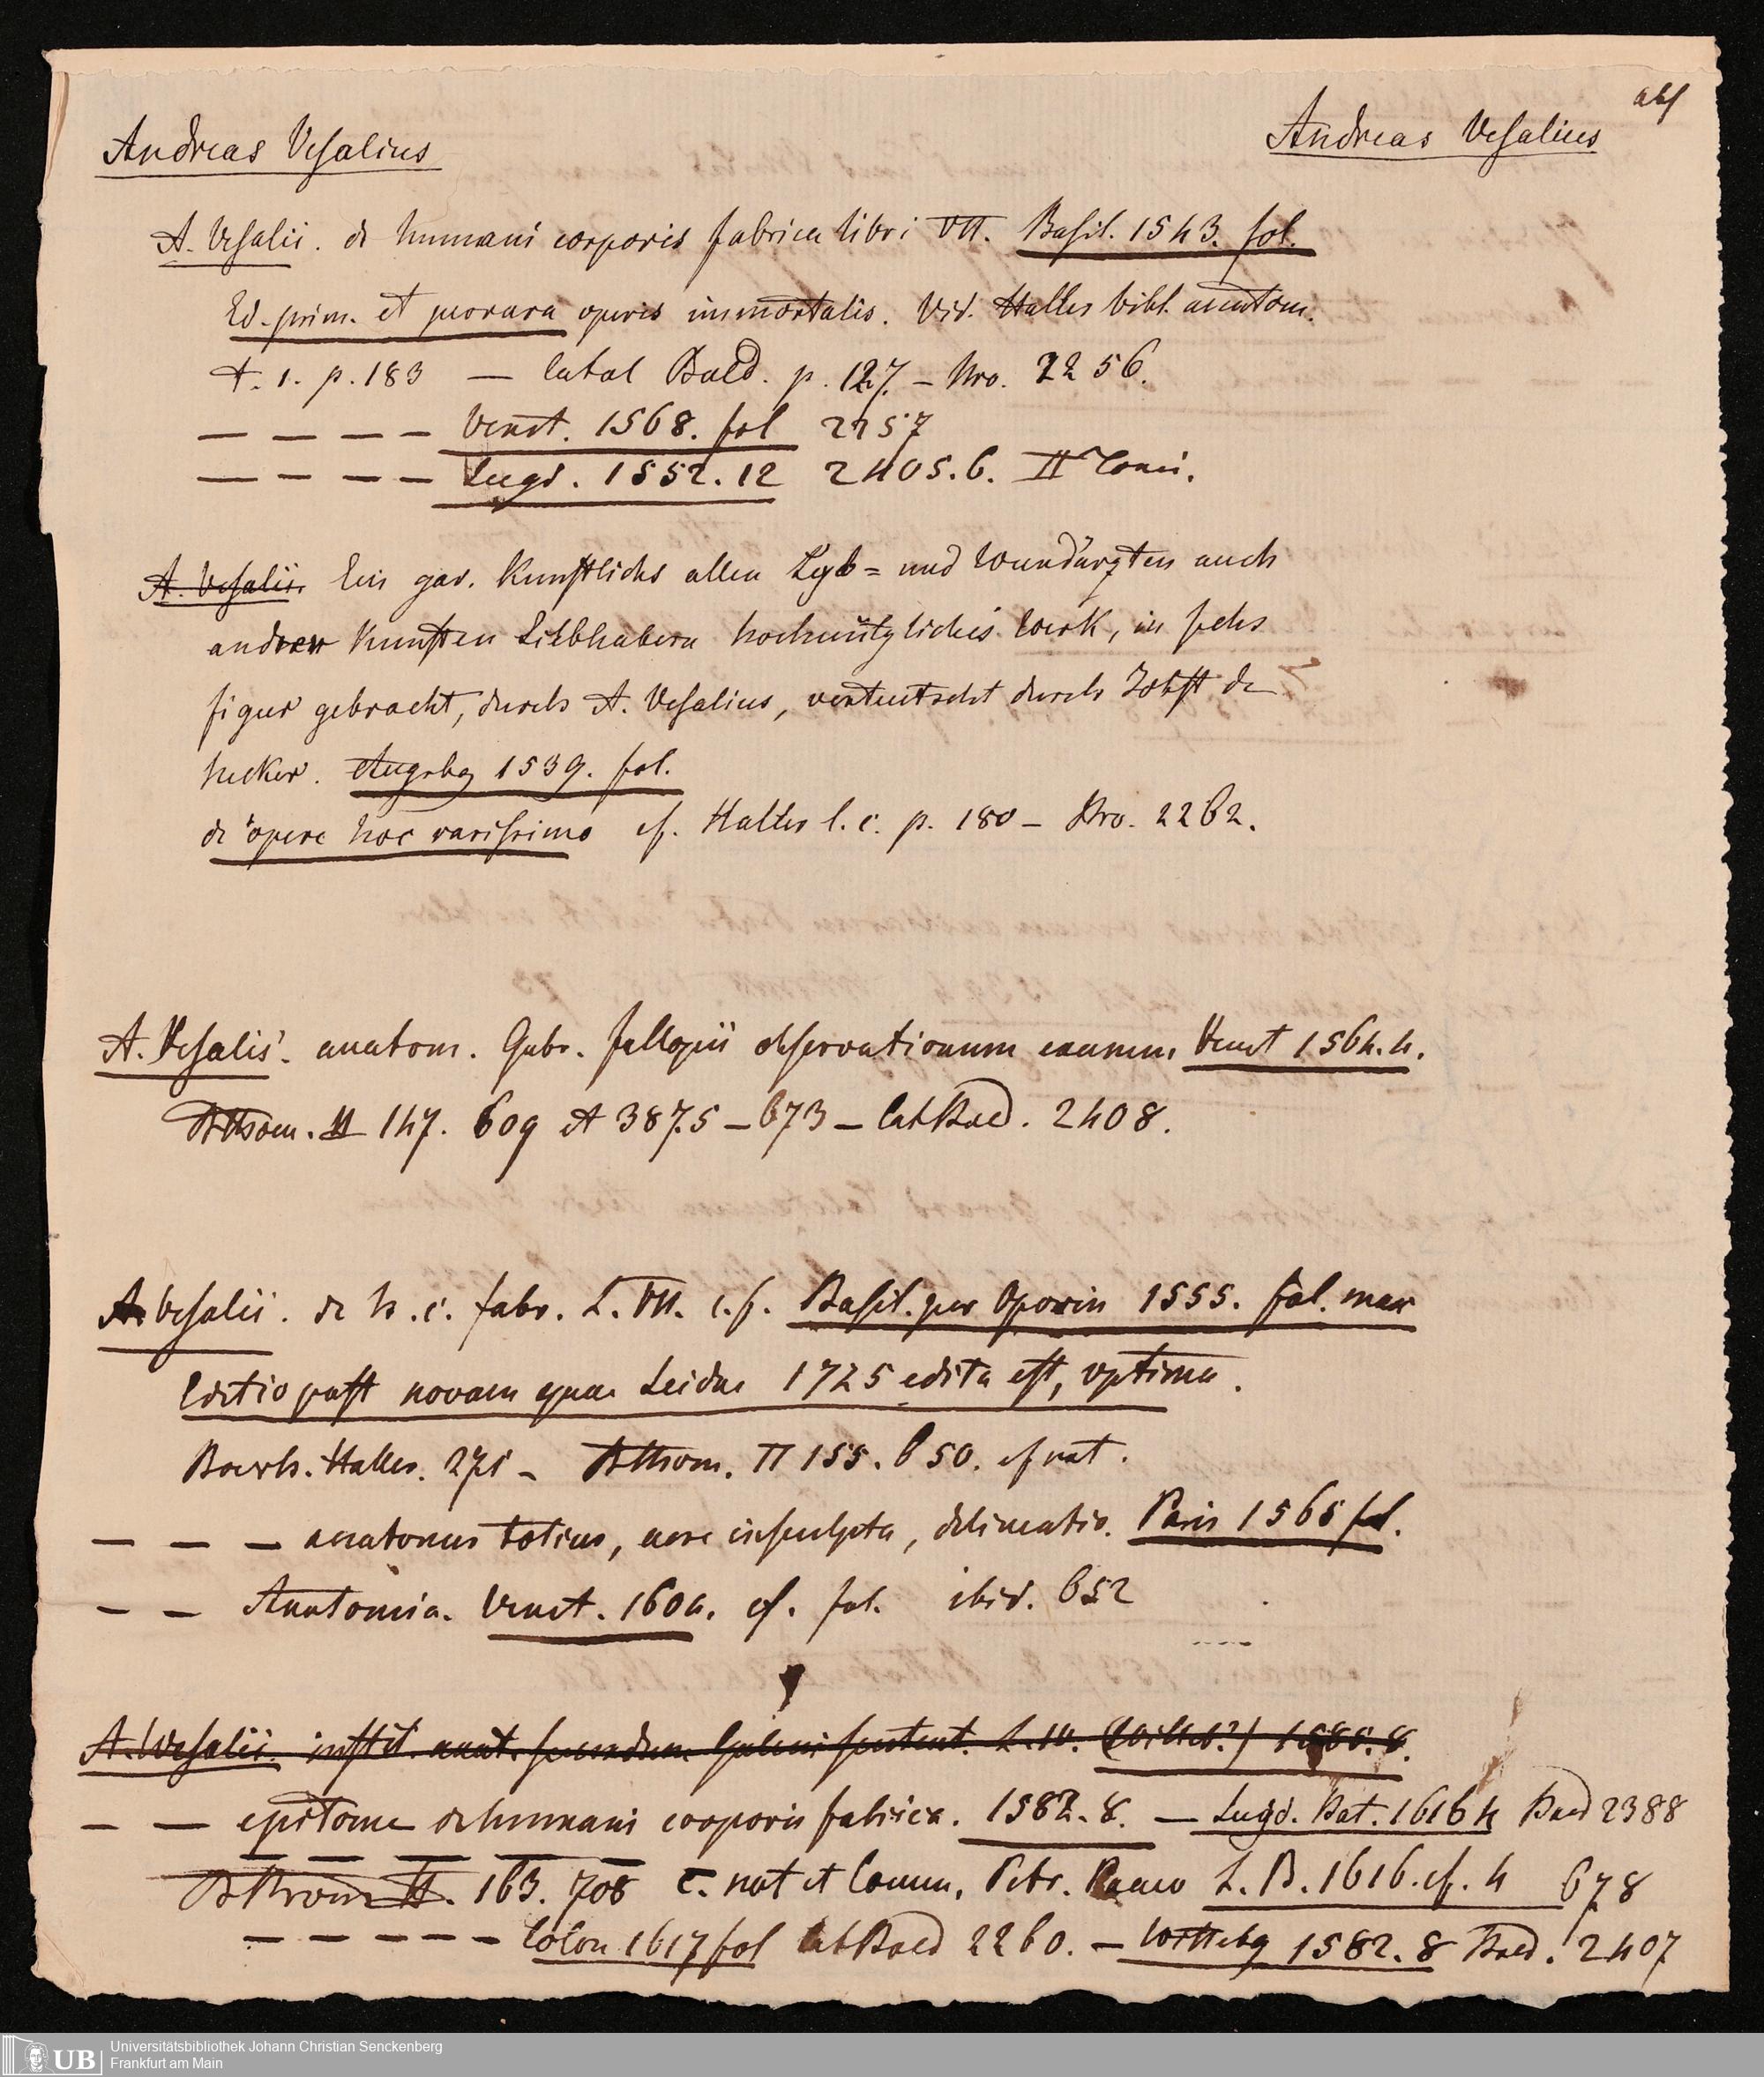 Andreas Vesalius
Andreas Vesalius
A. Vesalii. de humani corporis fabrica libri VII. Basil. 1543. fol.
Ed. prim. et perrara operis immortalis. Vid. Haller bibl. anatom.
t. 1. p. 183 — Catal Bald. p. 127. – Nro. 2256.
— — — — Venet. 1568. fol 2257
— — — — Lugd. 1552. 12 2405.6. II Tomi.
A. Vesalii. Ein gar. Kunstlichs allen Leyb= und Wundärzten auch
andrer Kunsten Liebhabern hochnützliches Werk, in sechs
figur gebracht, durch A. Vesalius, verteutscht durch Jobst de
necker. Augsbg 1539. fol.
de opere hoc rarissimo cf. Haller l. c. p. 180 – Nro. 2262.
A. Vesalii. anatom. Gabr. fallopii observationum examen Venet 1564. 4.
II 147. 609 et 387.5 – 673 – Cat Bald. 2408.
A. Vesalii. de h. c. fabr. L. VII. c. f. Basil. per Oporin 1555. fol. max
Editio post novam quae Leidae 1725 edita est, optima.
Boerh. Haller. 271 – II 155. 650. cf not.
— — — anatomes totius, aere insculpta, delineatio. Paris 1565 fol.
— — Anatomia. Venet. 1604. cf. fol. ibid. 652
A. Vesalii. instit. anat. secundum Galeni sentent. L. IV. (Witteb.?) 1585. 8.
— — epitome de humani corporis fabrica. 1582. 8. — Lugd. Bat. 1616 4 Bald 2388
II. 163. 708 c. not et Comm. Petr. Paaw L. B. 1616. cf. 4 678
— — — — — Colon 1617 fol Cat Bald 2260. — Wittebg 1582. 8 Bald. 2407
Universitätsbibliothek Johann Christian Senckenberg
Frankfurt am Main
UB